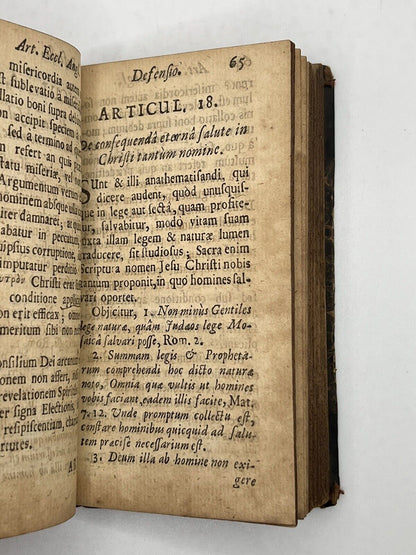 Art. Eccl. Ang
misericordia
est sublevatio à
collatio boni supra
non accipit specien
sed à termino ad
n refert an quis
statu miseriæ, vel
Argumentum
hominem absque ulla
iter damnaret; at qu
dabatur in percus-
uipsius corruptione,
imputatur perdit
Christi era
conditione applic
on erit efficax; om
meritum sibi non
onsilium Dei arcanum
non affert,
revelationem Spirit
per signa Electionis,
resipiscentiam, cha
rtutes.
A
Defensio. 65
ARTICUL. 18.
De consequendâ æternâ salute in
Christi tantum nomine.
SUnt & illi anathematisandi, qui
dicere audent, quòd unusquis-
que in lege aut sectâ, quam profite-
tur, salvabitur, modò vitam suam
juxta illam legem & naturæ lumen
traducere, sit studiosus; Sacra enim
Scriptura nomen Jesu Christi nobis
tantum proponit, in quo homines sal-
vari oportet.
Objicitur, 1. Non minùs Gentiles
lege naturæ, quàm Judæos lege Mo-
saicâ salvari posse, Rom. 2.
2. Summam legis & Prophetâ-
rum comprehendi hoc dicto naturæ
noto, Omnia quæ vultis ut homines
vobis faciant, eadem illis facite, Mat.
7. 12. Unde promptum collectu est,
constare hominibus quicquid ad salu-
tem præcise necessarium est.
3. Deum illa ab homine non exi-
gere